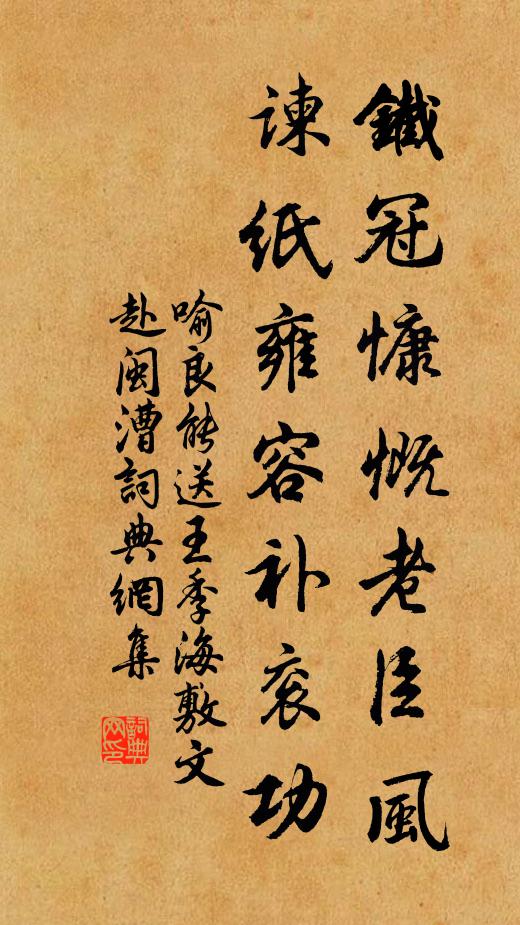 鐵冠慷慨老臣風
諫紙雍容补衮功
喻良能送王季海敷文
赴閩漕詞典網集
詞典网印